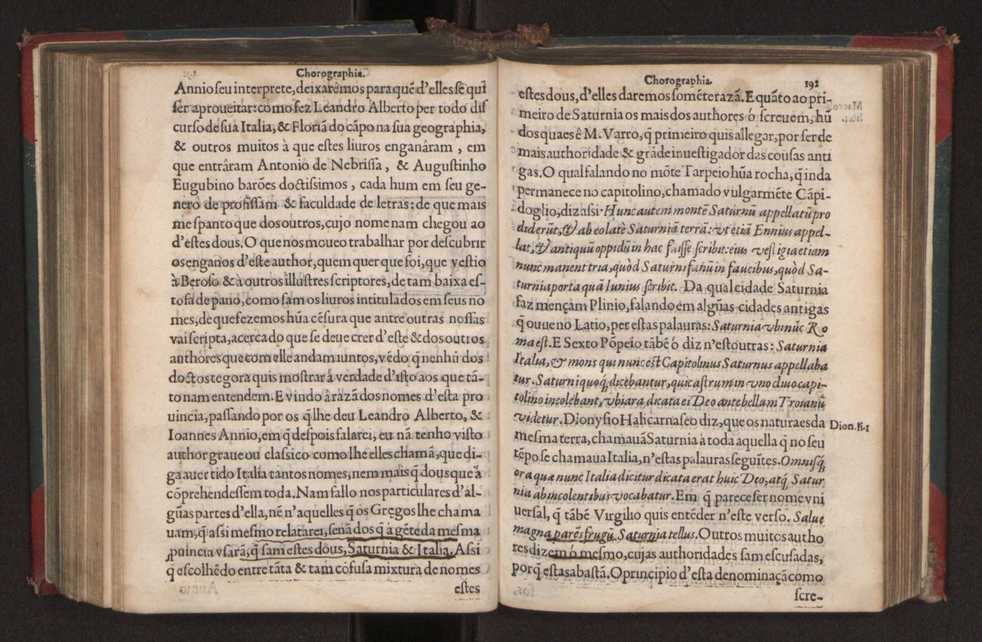 Chorographia.
Annio seu interprete, deixaremos para quẽ d'elles sẽ quı̃
ser aproueitar: como fez Leandro Alberto per todo dis
curso de sua Italia, & Floriã do cãpo na sua geographia,
& outros muitos à que estes liuros enganâram, em
que entrâram Antonio de Nebrissa, & Augustinho
Eugubino barões doctissimos, cada hum em seu ge-
nero de profissam & faculdade de letras: de que mais
me spanto que dos outros, cujo nome nam chegou ao
d'estes dous. O que nos moueo trabalhar por descubrir
os enganos d'este author, quem quer que foi, que vestio
à Beroso & à outros illustres scriptores, de tam baixa es-
tofa de pano, como sam os liuros intitulados em seus no
mes, de que fezemos hũa cẽsura que antre outras nossas
vai scripta, acerca do que se deue crer d'este & dos outros
authores que com elle andam iuntos, vẽdo q̃ nenhũ dos
doctos tegora quis mostrar à verdade d'isto aos que tã-
to nam entendem. E vindo à razã dos nomes d'esta pro
uincia, passando por os q̃ lhe deu Leandro Alberto, &
Ioannes Annio, em q̃ despois falarei, eu nã tenho visto
author graue ou classico como lhe elles chamã, que di-
ga auer tido Italia tantos nomes, nem mais q̃ dous que à
cõprehendessem toda. Nam fallo nos particulares d'al-
gũas partes d'ella, nẽ n'aquelles q̃ os Gregos lhe chama
uam, q̃ assi mesmo relatarei, senã dos q̃ à gẽte da mesma
prouincia vsarã, q̃ sam estes dous, Saturnia & Italia. Assi
q̃ escolhẽdo entre tãta & tam cõfusa mixtura de nomes
estes
Chorographia. 192
estes dous, d'elles daremos somẽte razã. E quãto ao pri-
meiro de Saturnia os mais dos authores ó screuem, hũ
dos quaes ê M. Varro, q̃ primeiro quis allegar, por ser de
mais authoridade & grãde inuestigador das cousas anti
gas. O qual falando no mõte Tarpeio hũa rocha, q̃ inda
permanece no capitolino, chamado vulgarmẽte Cãpi-
doglio, diz assi. Hunc autem montẽ Saturnũ appellatũ pro
diderũt, & ab eo latè Saturniã terrã: vt etiã Ennius appel-
lat, & antiquũ oppidũ in hac fuisse scribit: eius vestigia etiam
nunc manent tria, quòd Saturni fanũ in faucibus, quòd Sa-
turnia porta quã Iunius scribit. Da qual cidade Saturnia
faz mençam Plinio, falando em algũas cidades antigas
q̃ ouue no Latio, per estas palauras: Saturnia vbi nũc Ro
ma est. E Sexto Põpeio tãbẽ ó diz n'estoutras: Saturnia
Italia, & mons qui nunc est Capitolinus Saturnus appellaba
tur. Saturni quoq; dicebantur, qui castrum in vno diuo capi-
tolino incolebant, vbi ara dicata ei Deo ante bellum Troianũ
videtur. Dionysio Halicarnaseo diz, que os naturaes da
mesma terra, chamauã Saturnia à toda aquella q̃ no seu
tẽpo se chamaua Italia, n'estas palauras seguintes. Omnisq;
ora quæ nunc Italia dicitur dicata erat huic Deo, atq; Satur
nia ab incolentibus vocabatur. Em q̃ parece ser nome vni
uersal, q̃ tãbẽ Virgilio quis entẽder n'este verso. Salue
magna parẽs frugũ, Saturnia tellus. Outros muitos autho
res dizem ó mesmo, cujas authoridades sam escusadas,
porq̃ estas abastã. O principio d'esta denominaçã como
scre-
Dion. li. 1